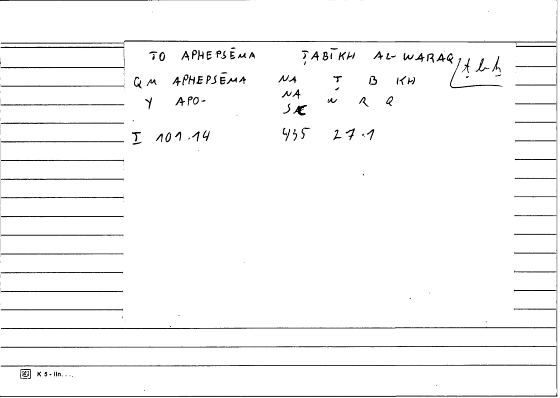 TO APHEPSĒMA ṬABĪKH AL-WARAQ ṭ b ḫ
QM APHEPSĒMA NA Ṭ B KH
Y APO- NA
W R Q
I 101.14 27.1
K 5 - lin.